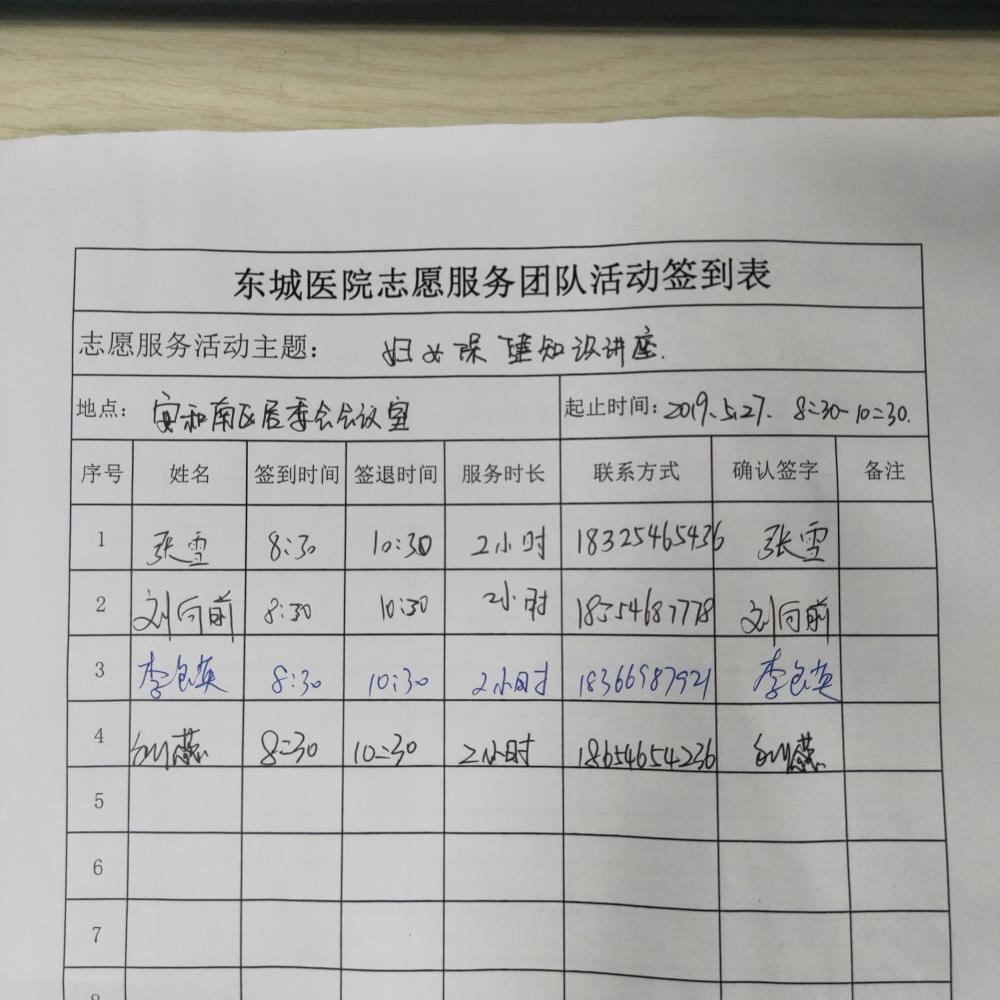 东城医院志愿服务团队活动签到表
志愿服务活动主题： 妇女保健知识讲座.
地点： 安和南区居委会会议室 起止时间：2019.5.27. 8:30-10:30.
序号 姓名 签到时间 签退时间 服务时长 联系方式 确认签字 备注
1 张雪 8:30 10:30 2小时 18325465436 张雪
2 刘向前 8:30 10:30 2小时 18354687778 刘向前
3 李 英 8:30 10:30 2小时 18366987921 李 英
4 8:30 10:30 2小时 18654654236
5
6
7
8